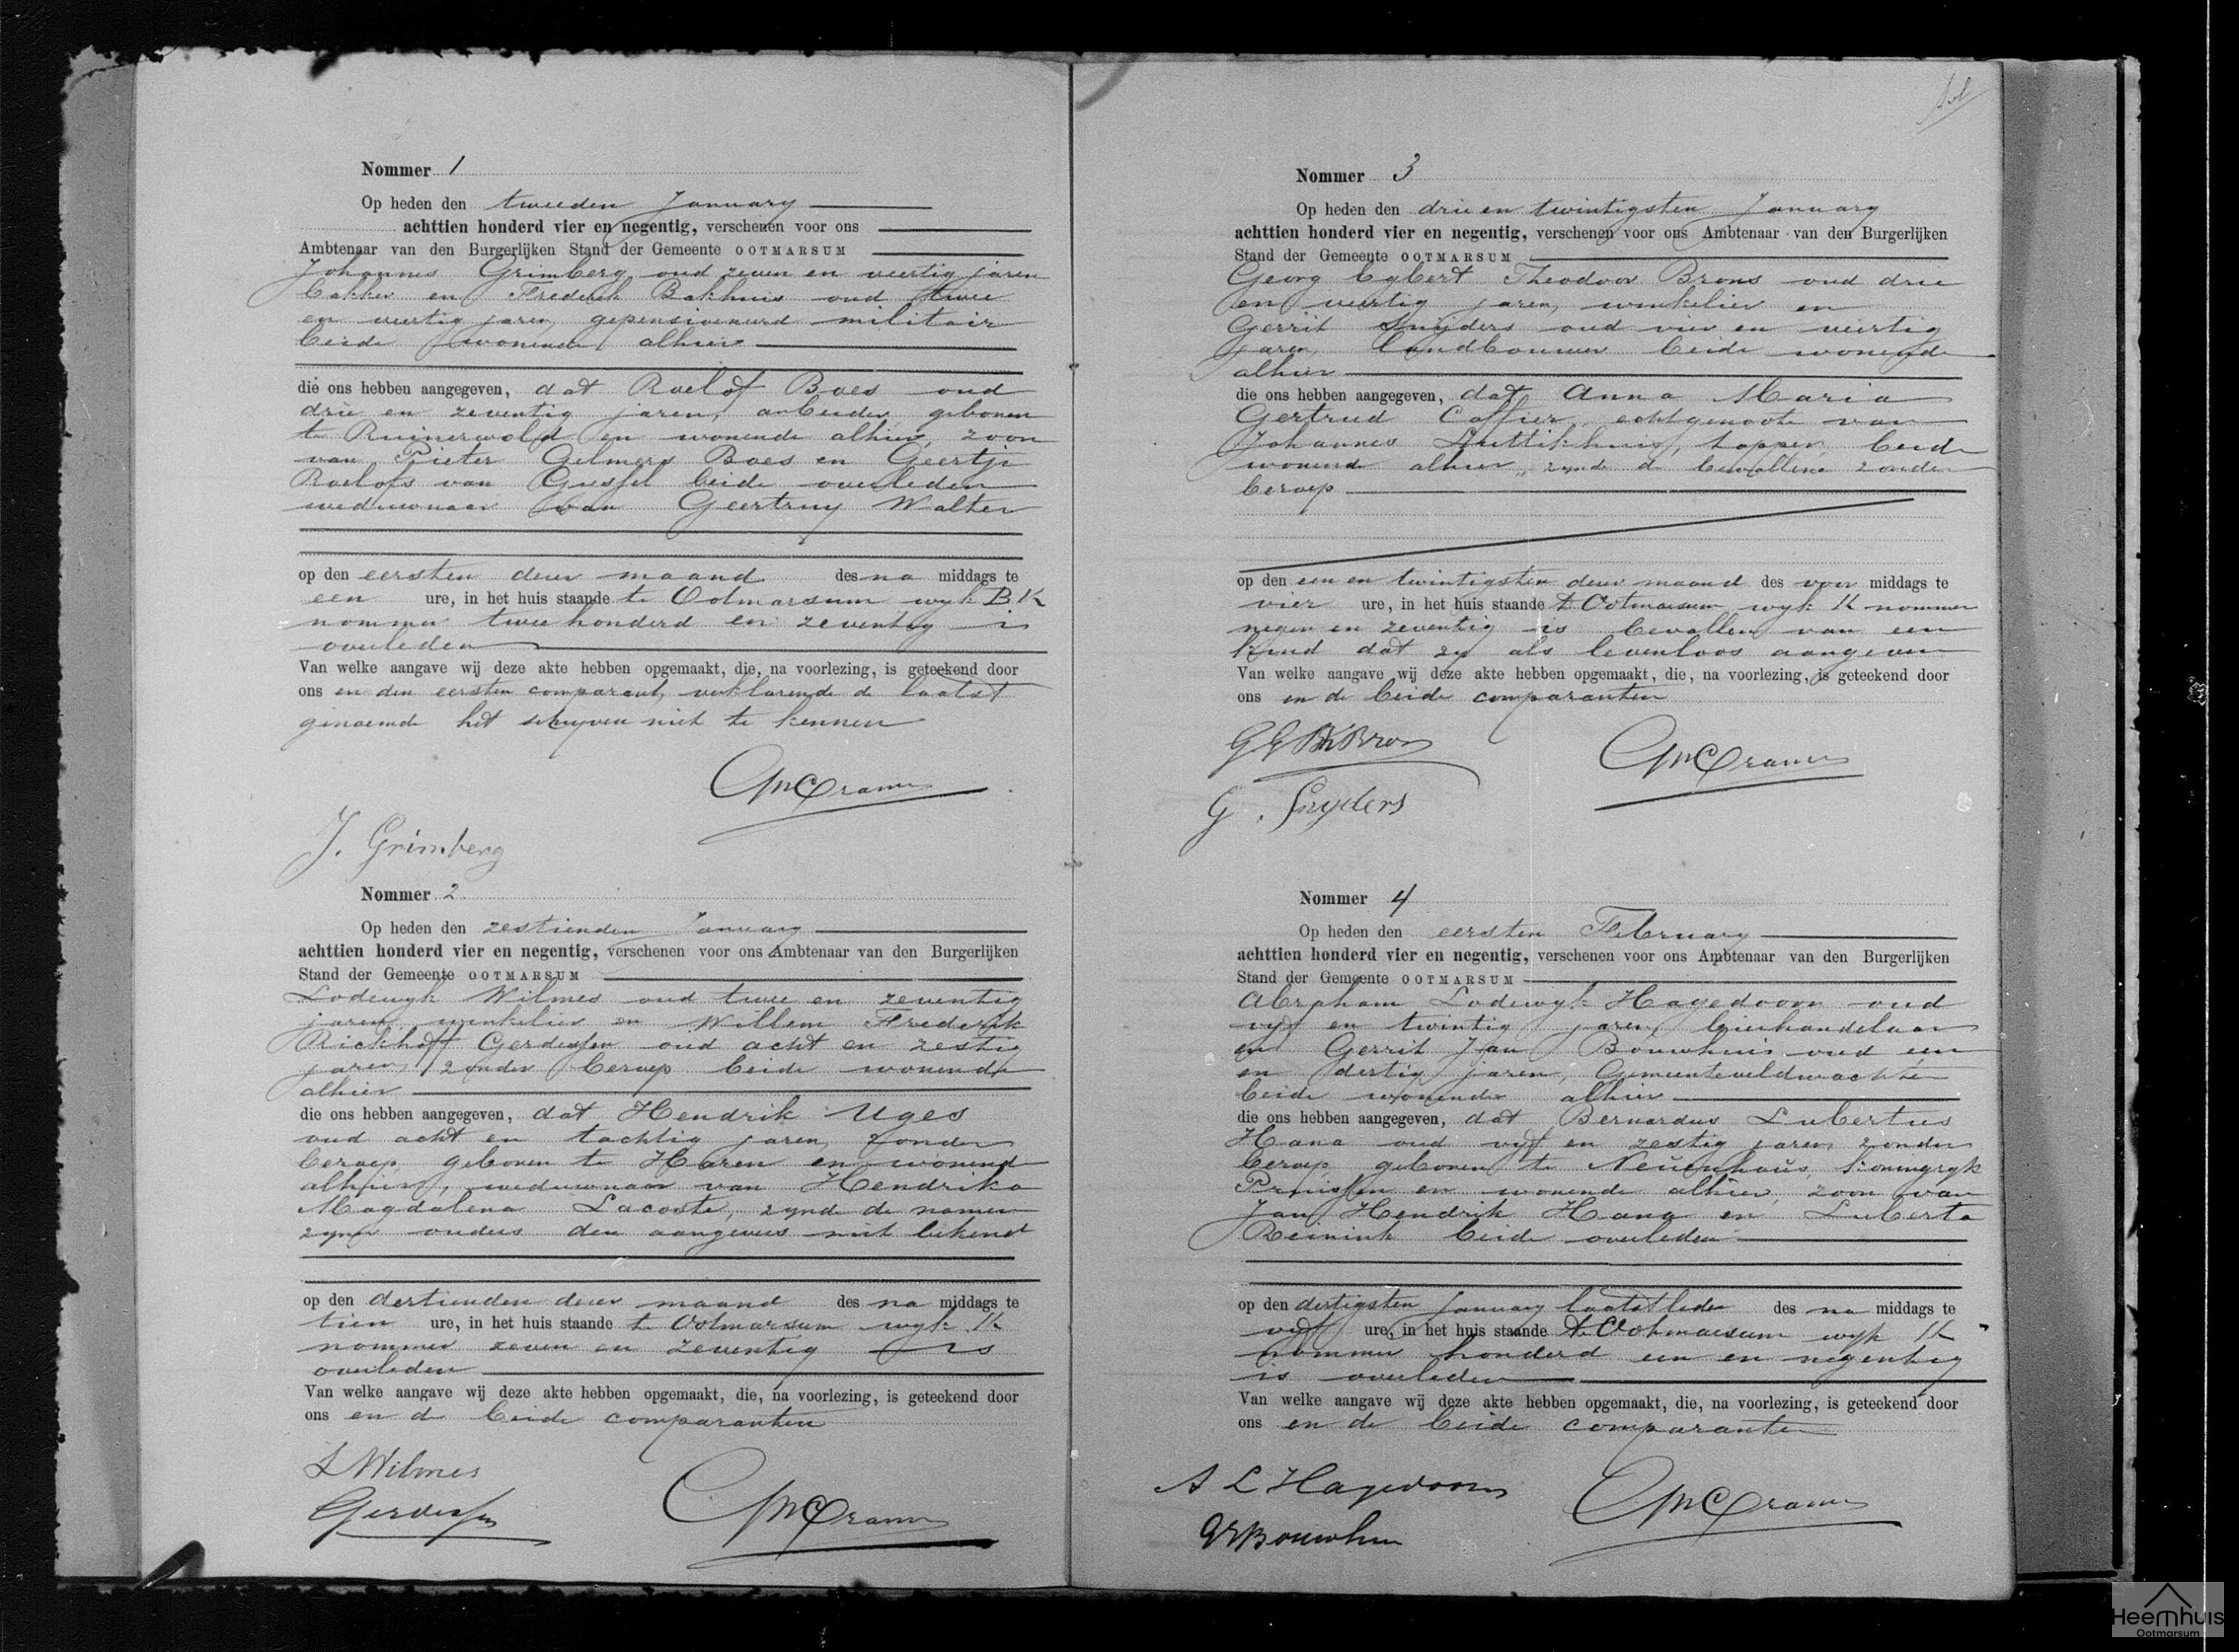 Nommer 1
Op heden den tweeden January
achttien honderd vier en negentig, verschenen voor ons
Ambtenaar van den Burgerlijken Stand der Gemeente OOTMARSUM
Johannes Grimberg oud zeven en veertig jaren
bakker en Frederik Bakhuis oud twee
en veertig jaren, gepensioneerd militair
beide wonende alhier
die ons hebben aangegeven, dat Roelof Boes oud
drie en zeventig jaren, arbeider, geboren
te Ruinerwold en wonende alhier, zoon
van Pieter Gelmers Boes en Geertje
Roelofs van Gussel beide overleden
weduwnaar van Geertruy Walter
op den eersten dezer maand des na middags te
een ure, in het huis staande te Ootmarsum wyk B K
nommer twee honderd en zeventig is
overleden
Van welke aangave wij deze akte hebben opgemaakt, die, na voorlezing, is geteekend door
ons en den eersten comparant, verklarende de laatst
genoemde het schryven niet te kennen
Cramer
J. Grimberg
Nommer 2
Op heden den zestienden January
achttien honderd vier en negentig, verschenen voor ons Ambtenaar van den Burgerlijken
Stand der Gemeente OOTMARSUM
Lodewyk Wilmes oud twee en zeventig
jaren winkelier en Willem Frederik
Rickhoff Gerdessen oud acht en zestig
jaren, zonder beroep beide wonende
alhier
die ons hebben aangegeven, dat Hendrik Uges
oud acht en tachtig jaren, zonder
beroep, geboren te Haren en wonend
alhier, weduwnaar van Hendrika
Magdalena Lacoste, zynde de namen
zyner ouders den aangevers niet bekend
op den dertienden dezer maand des na middags te
tien ure, in het huis staande te Ootmarsum wyk K
nommer zeven en zeventig is
overleden
Van welke aangave wij deze akte hebben opgemaakt, die, na voorlezing, is geteekend door
ons en de beide comparanten
L Wilmes
Gerdessen
Cramer
Nommer 3
Op heden den drie en twintigsten January
achttien honderd vier en negentig, verschenen voor ons Ambtenaar van den Burgerlijken
Stand der Gemeente OOTMARSUM
Georg Egbert Theodoor Brons oud drie
en veertig jaren, winkelier en
Gerrit Snijders oud vier en veertig
jaren, landbouwer beide wonende
alhier
die ons hebben aangegeven, dat Anna Maria
Gertrud Coffier, echtgenoote van
Johannes Luttikhuis, tapper, beide
wonende alhier, zynde de bevallene zonder
beroep
op den een en twintigsten dezer maand des voor middags te
vier ure, in het huis staande te Ootmarsum wyk K nommer
negen en zeventig is bevallen van een
kind dat zy als levenloos aangeven
Van welke aangave wij deze akte hebben opgemaakt, die, na voorlezing, is geteekend door
ons en de beide comparanten
Brons
Cramer
G. Snyders
Nommer 4
Op heden den eersten February
achttien honderd vier en negentig, verschenen voor ons Ambtenaar van den Burgerlijken
Stand der Gemeente OOTMARSUM
Abraham Lodewyk Hagedoorn oud
vyf en twintig jaren, bierhandelaar
en Gerrit Jan Bouwhuis oud een
en dertig jaren, Gemeenteveldwachter
beide wonende alhier
die ons hebben aangegeven, dat Bernardus Lubertus
Hana oud vyf en zestig jaren zonder
beroep, geboren te Neuenhaus, Koningryk
Pruissen en wonende alhier, zoon van
Jan Hendrik Hana en Luberta
Reinink beide overleden
op den dertigsten January laatstleden des na middags te
vyf ure, in het huis staande te Ootmarsum wyk K
nommer honderd een en negentig
is overleden
Van welke aangave wij deze akte hebben opgemaakt, die, na voorlezing, is geteekend door
ons en de beide comparanten
A L Hagedoorn
Cramer
Bouwhuis
Heemhuis
Ootmarsum